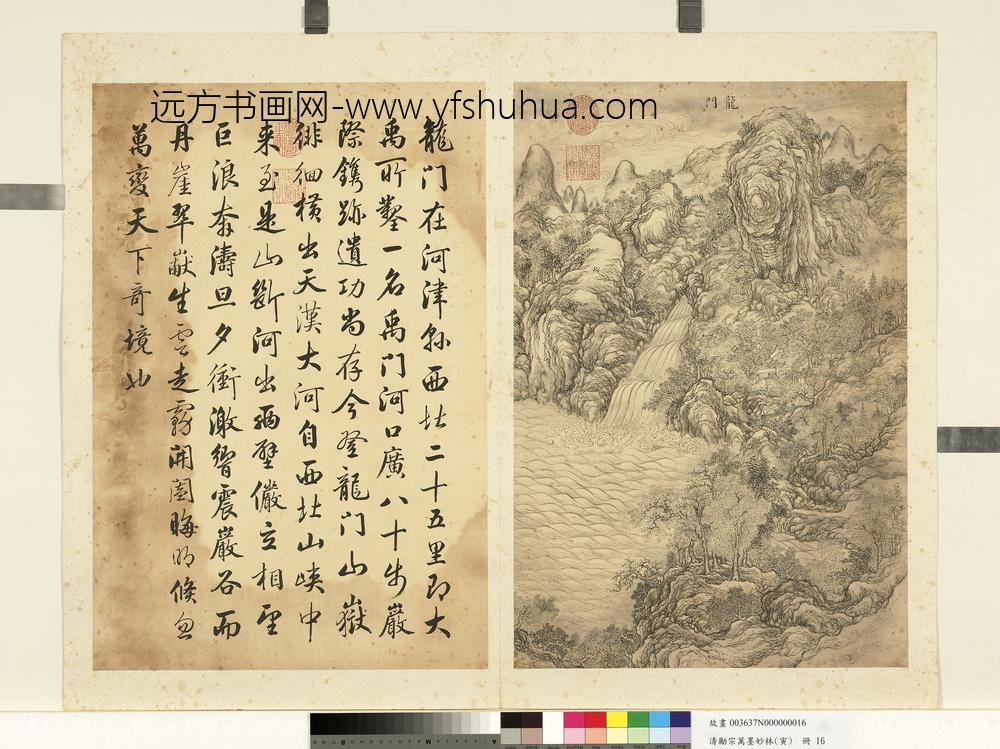 远方书画网-www.yfshuhua.com
龍門
龍门在河津縣西北二十五里即大
禹所鑿一名禹门河口廣八十步巖
際鐫跡遺功尚存今登龍门山嶽
徘徊横出天漢大河自西北山峡中
来至是山斷河出兩壁儼立相望
巨浪奔濤旦夕衝激響震巖谷而
丹崖翠巘生雲走霧開闔晦明倏忽
萬變天下奇境也
故畫 003637N000000016
清勵宗萬墨妙林(寅) 冊 16